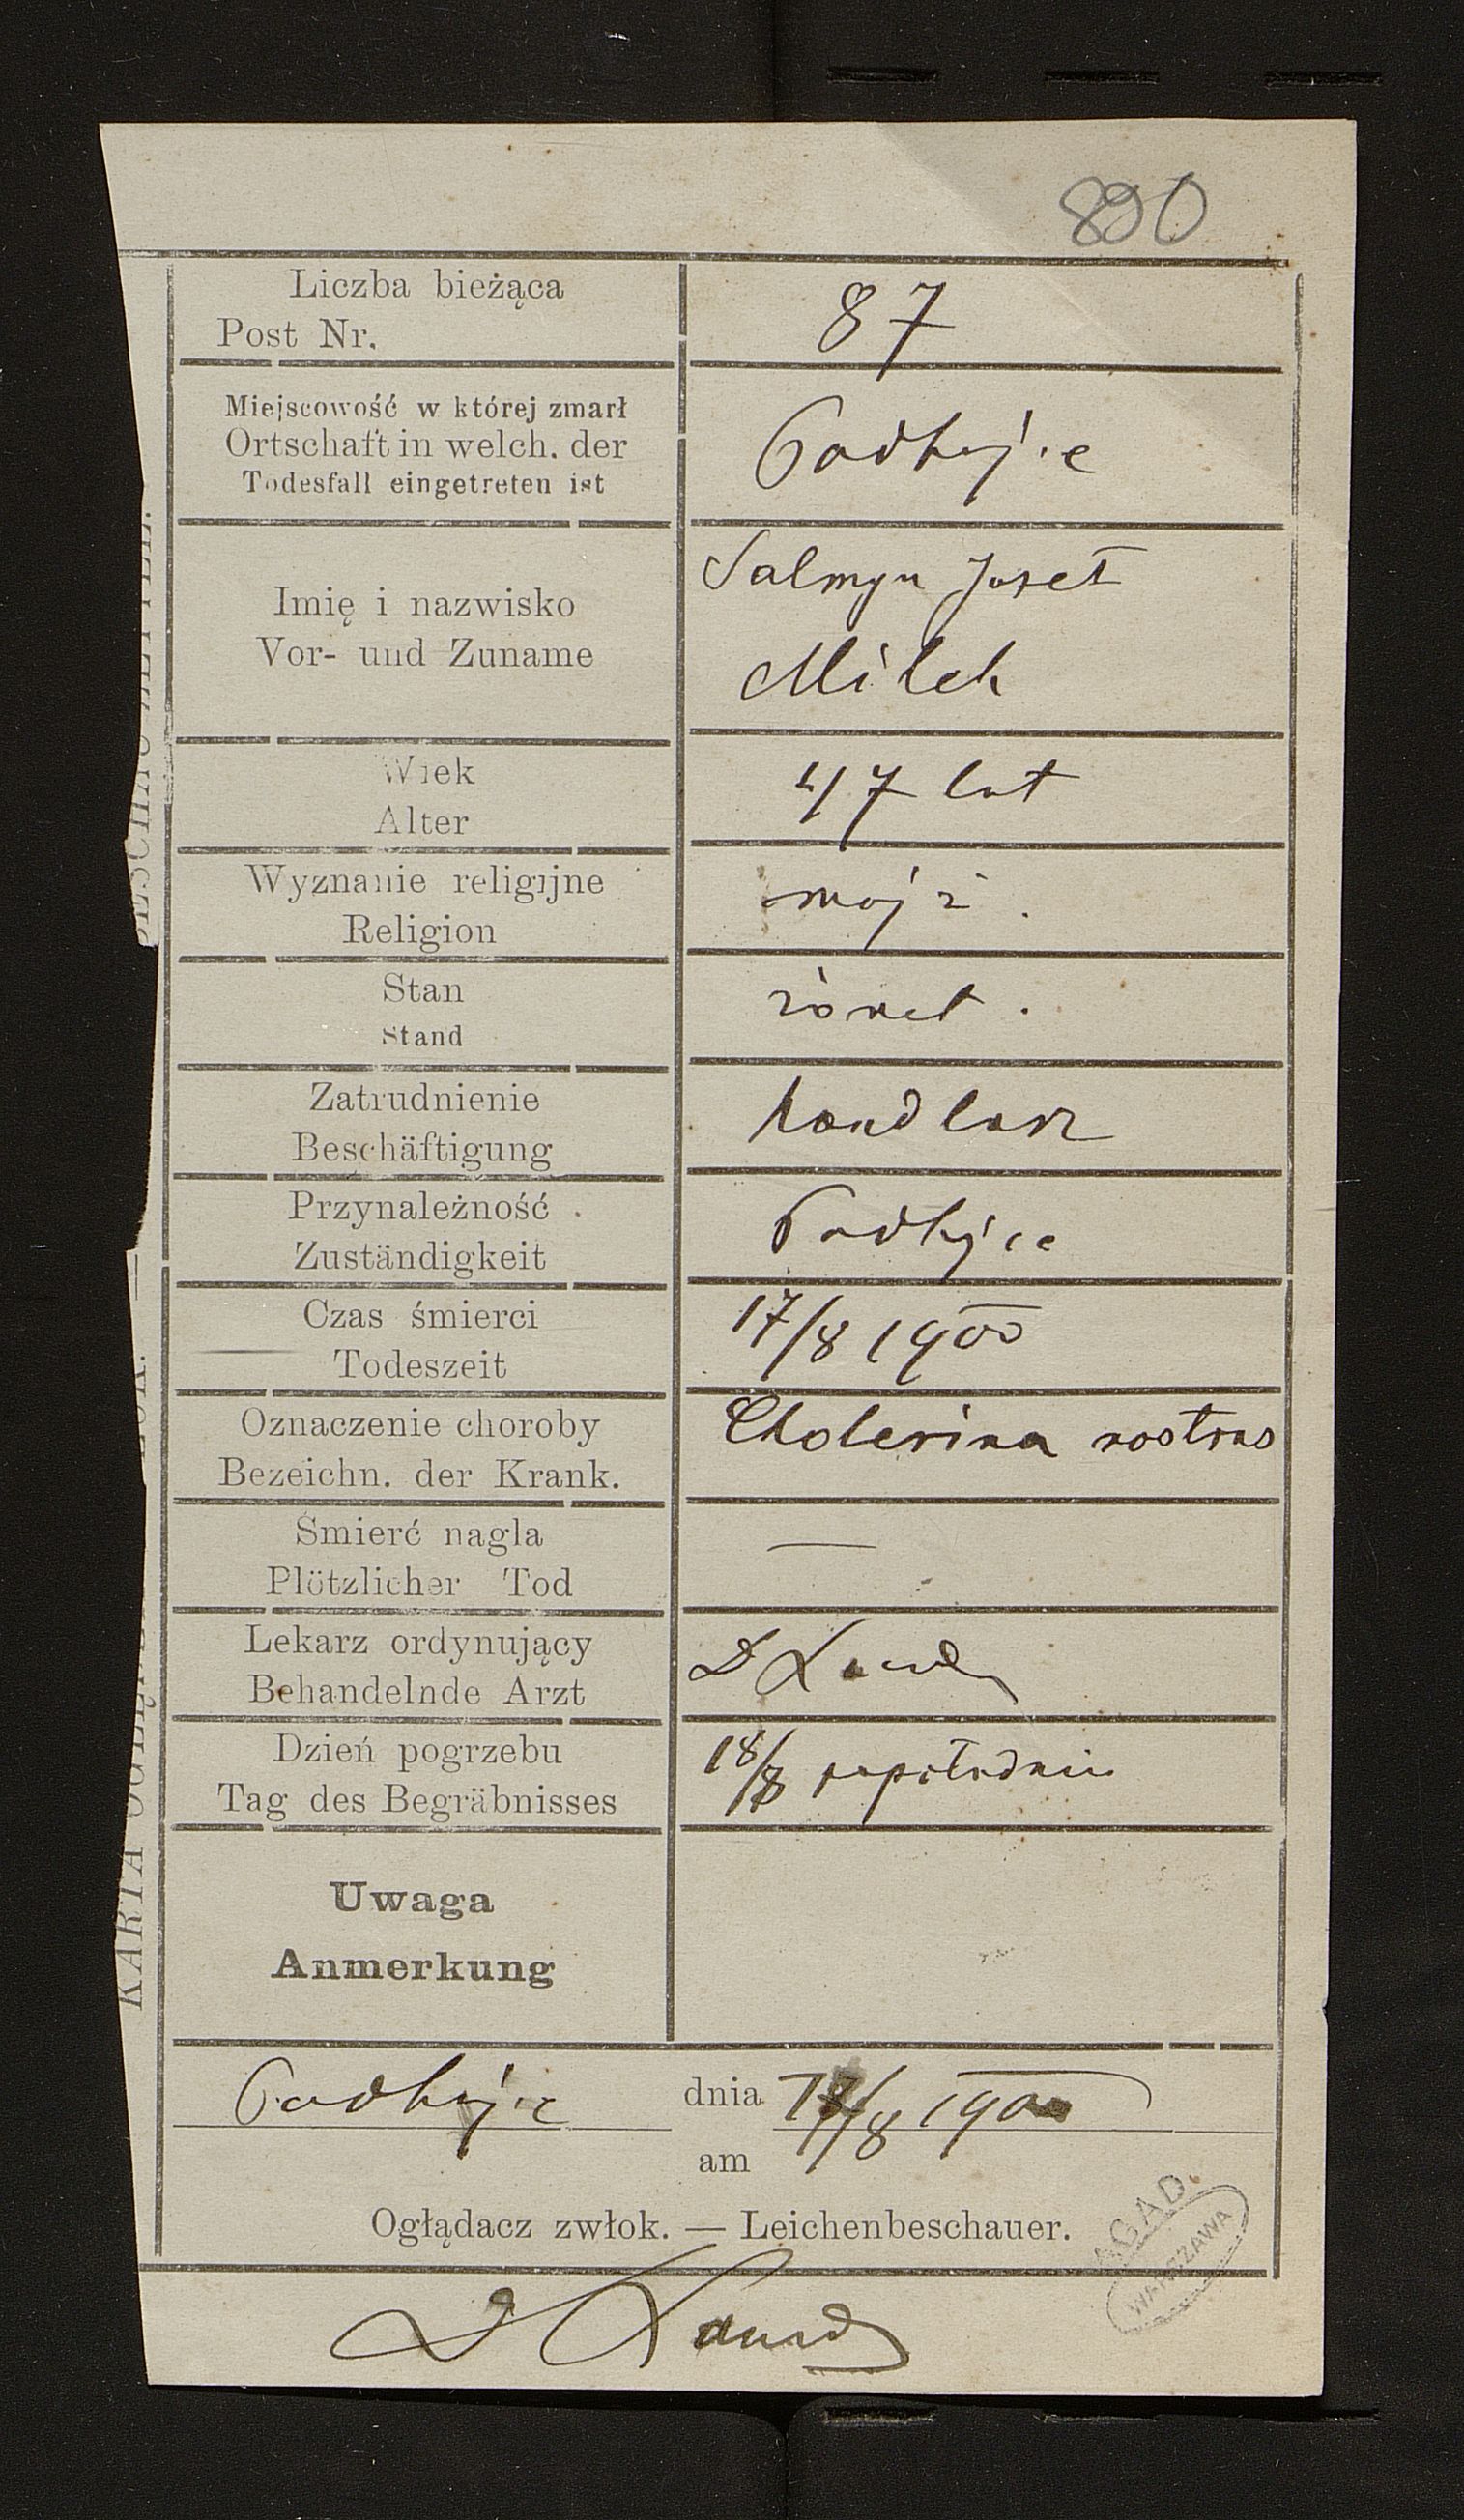 890
Liczba bieżąca
Post Nr.
87
Miejscowość w której zmarł
Ortschaft in welch. der
Todesfall eingetreten ist
Podhajce
Imię i nazwisko
Vor- und Zuname
Salmyn Josef
Milch
Wiek
Alter
47 lat
Wyznanie religijne
Religion
mojż.
Stan
Stand
żonat.
Zatrudnienie
Beschäftigung
handlarz
Przynależność
Zuständigkeit
Podhajce
Czas śmierci
Todeszeit
17/8 1900
Oznaczenie choroby
Bezeichn. der Krank.
Cholerina nostras
Śmierć nagla
Plötzlicher Tod
—
Lekarz ordynujący
Behandelnde Arzt
D
Dzień pogrzebu
Tag des Begräbnisses
18/8 popołudniu
Uwaga
Anmerkung
Podhajce dnia 17/8 1900
am
Oglądacz zwłok. — Leichenbeschauer.
D
AGAD
WARSZAWA
KARTA